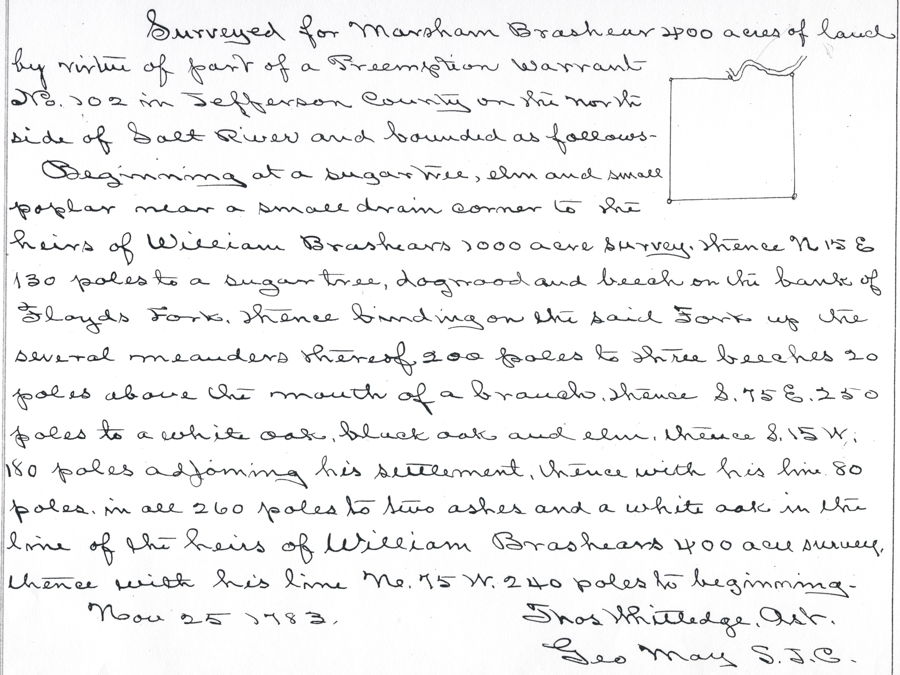 Surveyed for Marsham Brashear 400 acres of land
by virtue of part of a Preemption Warrant
No. 102 in Jefferson County on the north
side of Salt River and bounded as follows-
Beginning at a sugar tree, elm and small
poplar near a small drain corner to the
heirs of William Brashears 1000 acre survey, thence N 15 E
130 poles to a sugar tree, dogwood and beech on the bank of
Floyds Fork. thence binding on the said Fork up the
several meanders thereof 200 poles to three beeches 20
poles above the mouth of a branch. thence S. 75 E. 250
poles to a white oak, black oak and elm. thence S. 15 W.
180 poles adjoining his settlement, thence with his line 80
poles. in all 260 poles to two ashes and a white oak in the
line of the heirs of William Brashears 400 acre survey,
thence with his line No. 75 W. 240 poles to beginning-
Nov 25 1783.
Thos Whitledge, Ast.
Geo May S. J. C.